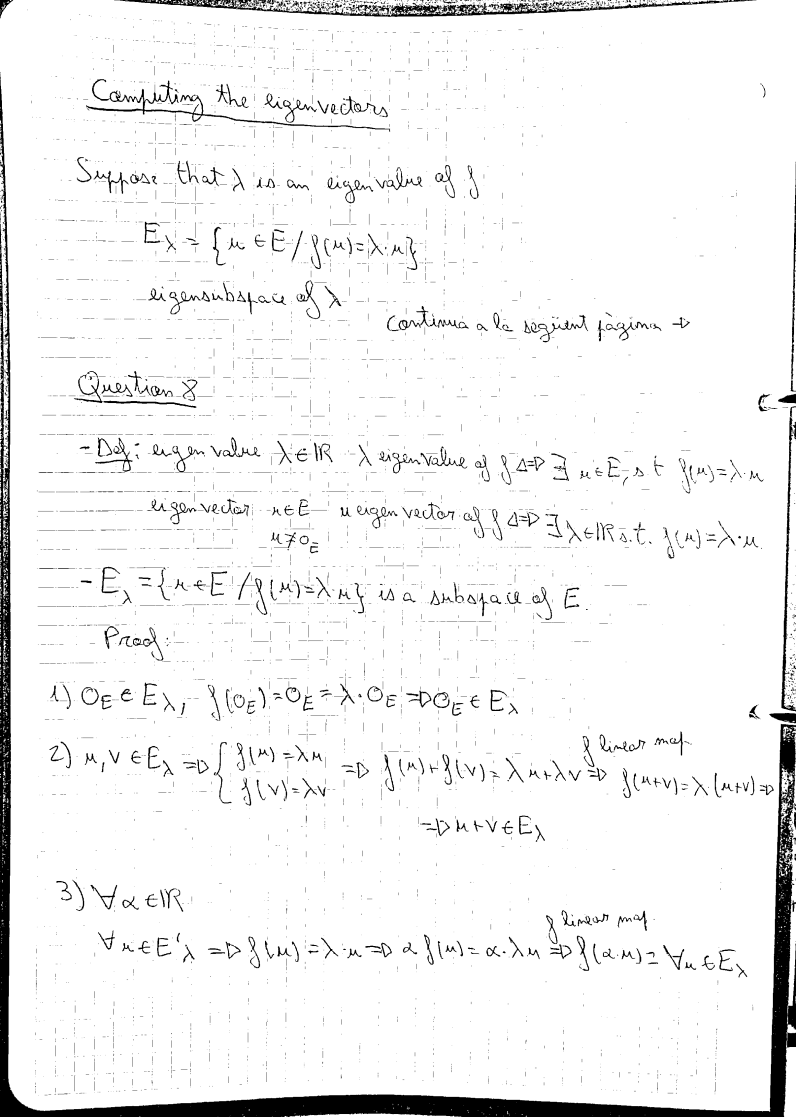 Computing the eigenvectors
Suppose that λ is an eigenvalue of f
E_λ = {u ∈ E / f(u) = λ·u}
eigensubspace of λ
continua a la següent pàgina ⇒
Question 8
- Def: eigenvalue λ ∈ ℝ λ eigenvalue of f ⇔ ∃ u ∈ E, s t f(u) = λ·u
eigenvector u ∈ E u eigenvector of f ⇔ ∃ λ ∈ ℝ s.t. f(u) = λ·u.
u ≠ 0_E
- E_λ = {u ∈ E / f(u) = λ u} is a subspace of E.
Proof:
1) 0_E ∈ E_λ, f(0_E) = 0_E = λ·0_E ⇒ 0_E ∈ E_λ
f linear map
2) u, v ∈ E_λ ⇒ { f(u) = λu ⇒ f(u) + f(v) = λu + λv ⇒ f(u+v) = λ(u+v) ⇒
f(v) = λv
⇒ u + v ∈ E_λ
3) ∀ α ∈ ℝ
f linear map
∀ u ∈ E'_λ ⇒ f(u) = λ·u ⇒ α f(u) = α·λu ⇒ f(α·u) = ∀u ∈ E_λ